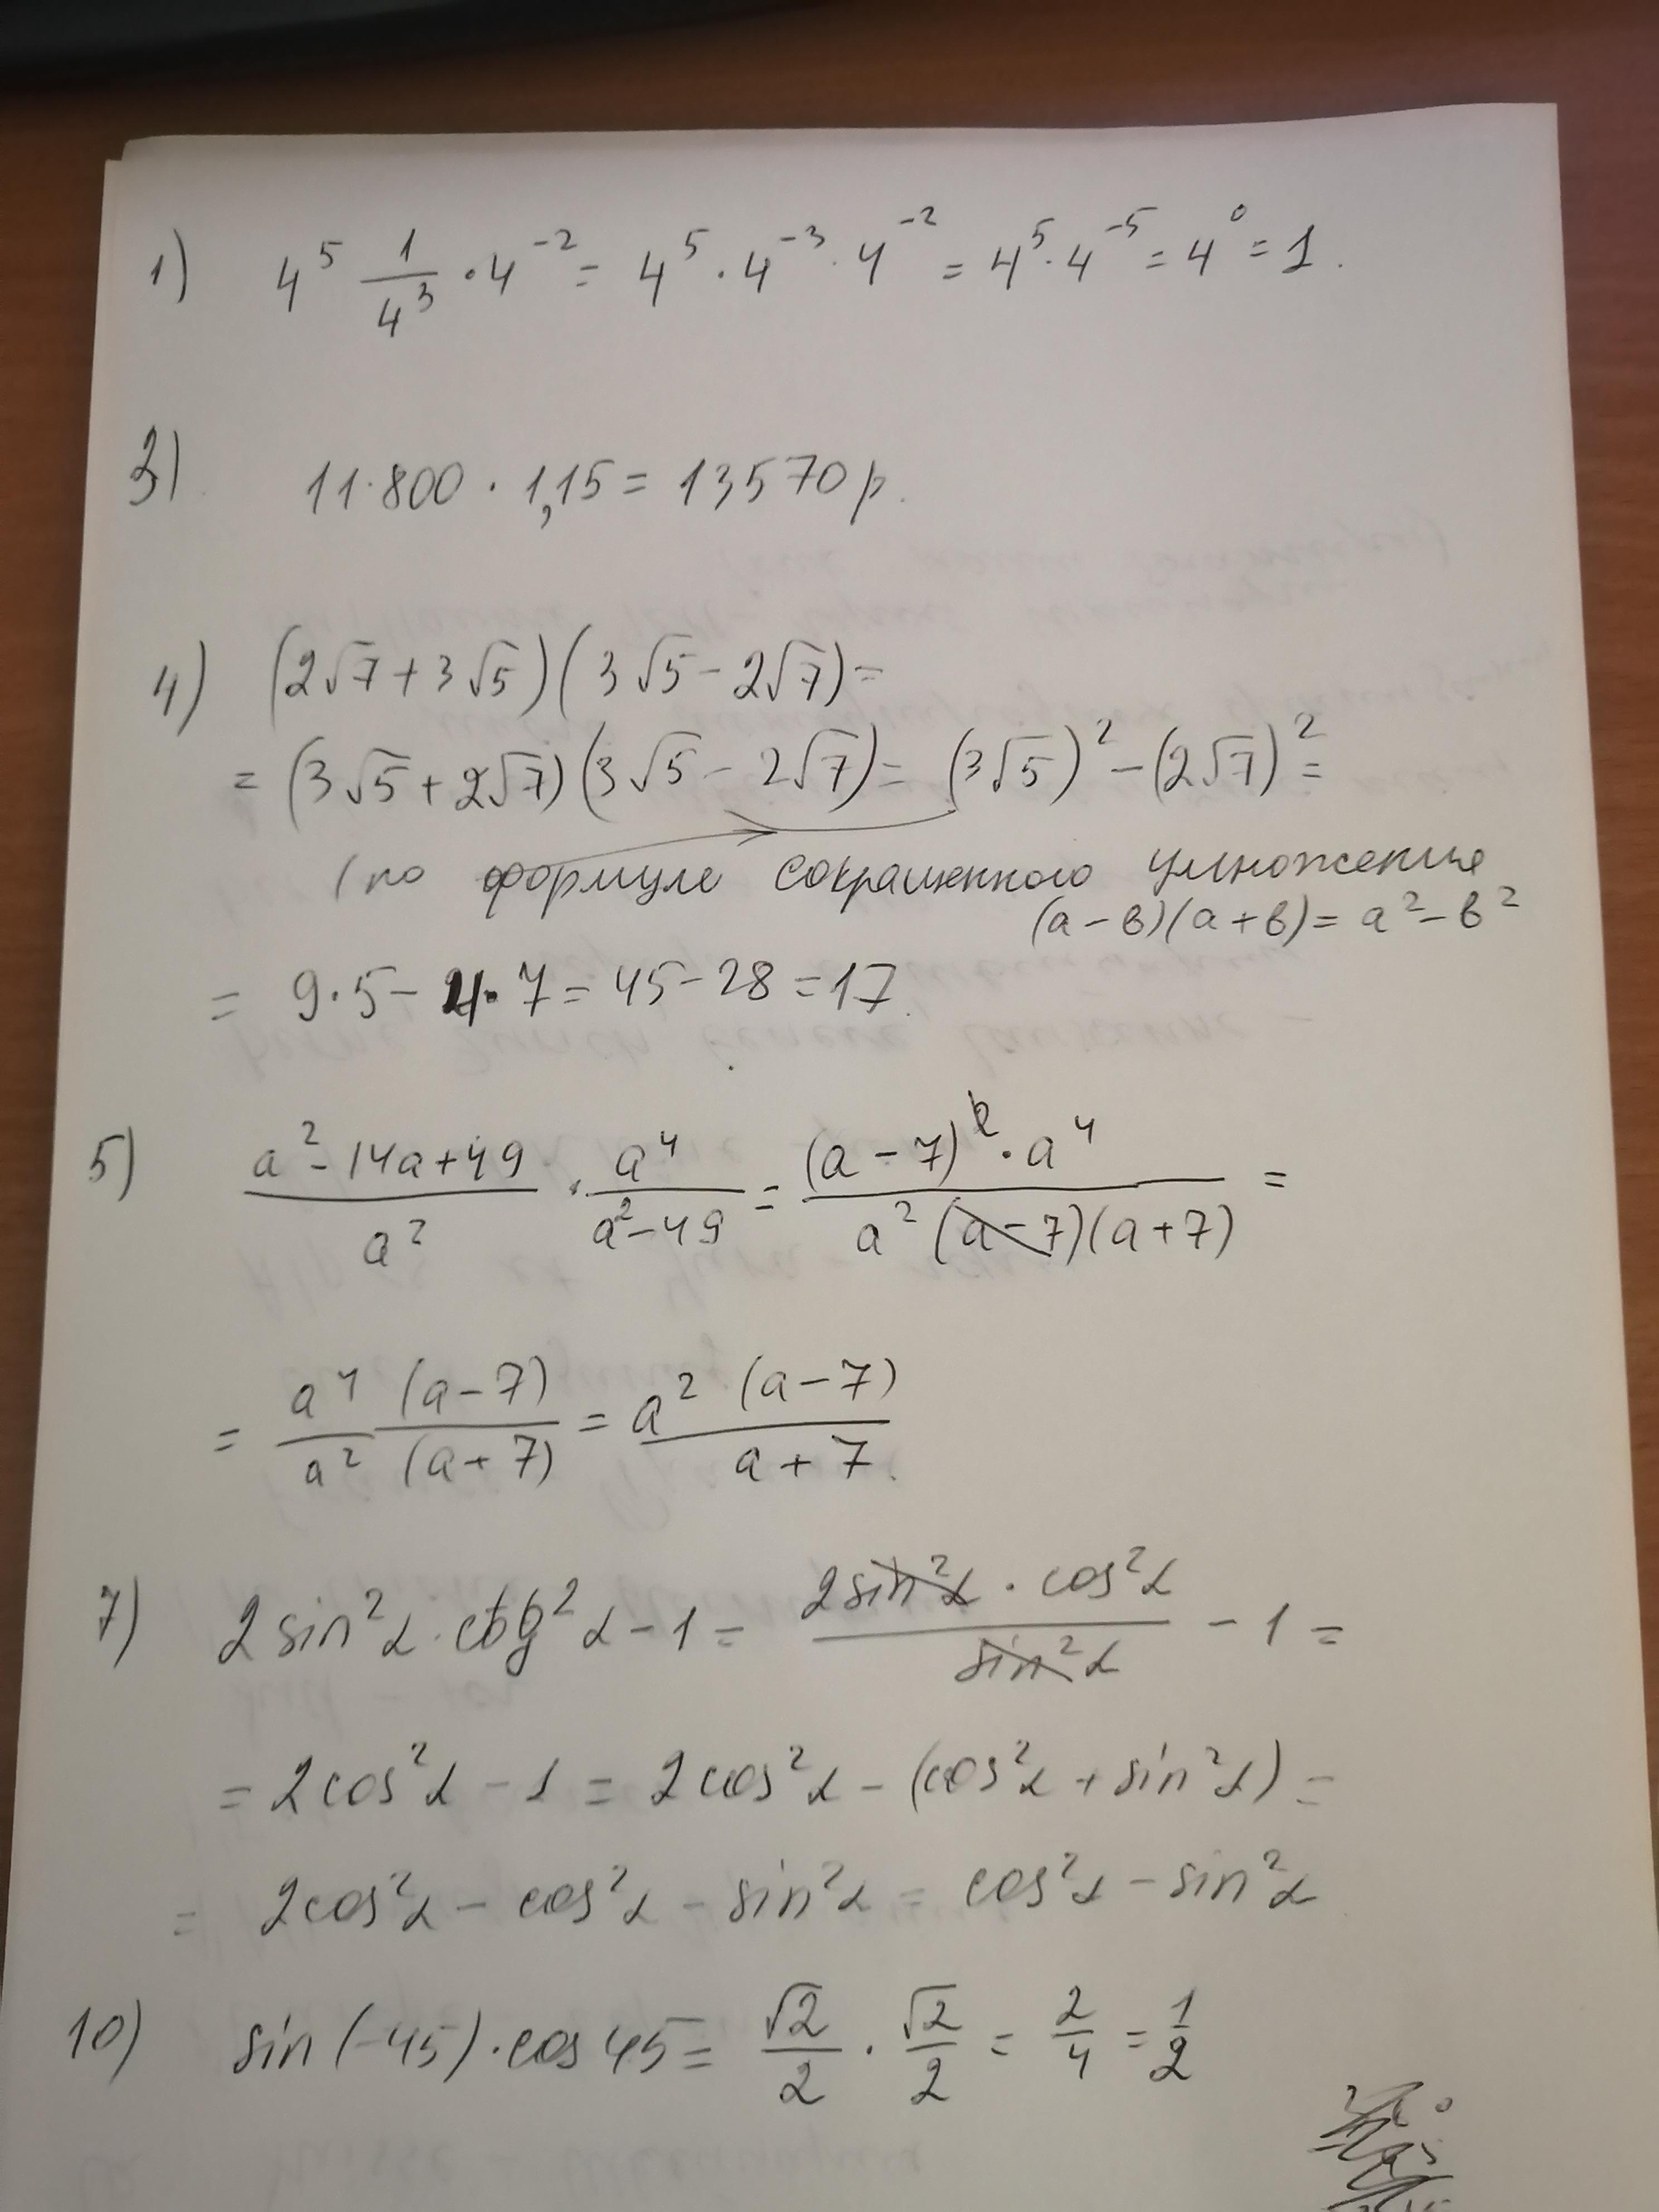 1) 4⁵ 1/4³ · 4⁻² = 4⁵ · 4⁻³ · 4⁻² = 4⁵ · 4⁻⁵ = 4⁰ = 1.
3) 11·800 · 1,15 = 13570 р.
4) (2√7 + 3√5)(3√5 - 2√7) =
= (3√5 + 2√7)(3√5 - 2√7) = (3√5)² - (2√7)² =
(по формуле сокращенного умножения
(a - в)(a + в) = a² - в²
= 9·5 - 4·7 = 45 - 28 = 17.
5) (a² - 14a + 49)/a² · a⁴/(a² - 49) = ((a - 7)² · a⁴)/(a² (a - 7)(a + 7)) =
= a⁴ (a - 7)/a² (a + 7) = a² (a - 7)/(a + 7).
7) 2 sin²α · ctg²α - 1 = (2 sin²α · cos²α)/(sin²α) - 1 =
= 2 cos²α - 1 = 2 cos²α - (cos²α + sin²α) =
= 2cos²α - cos²α - sin²α = cos²α - sin²α
10) sin(-45) · cos 45 = √2/2 · √2/2 = 2/4 = 1/2